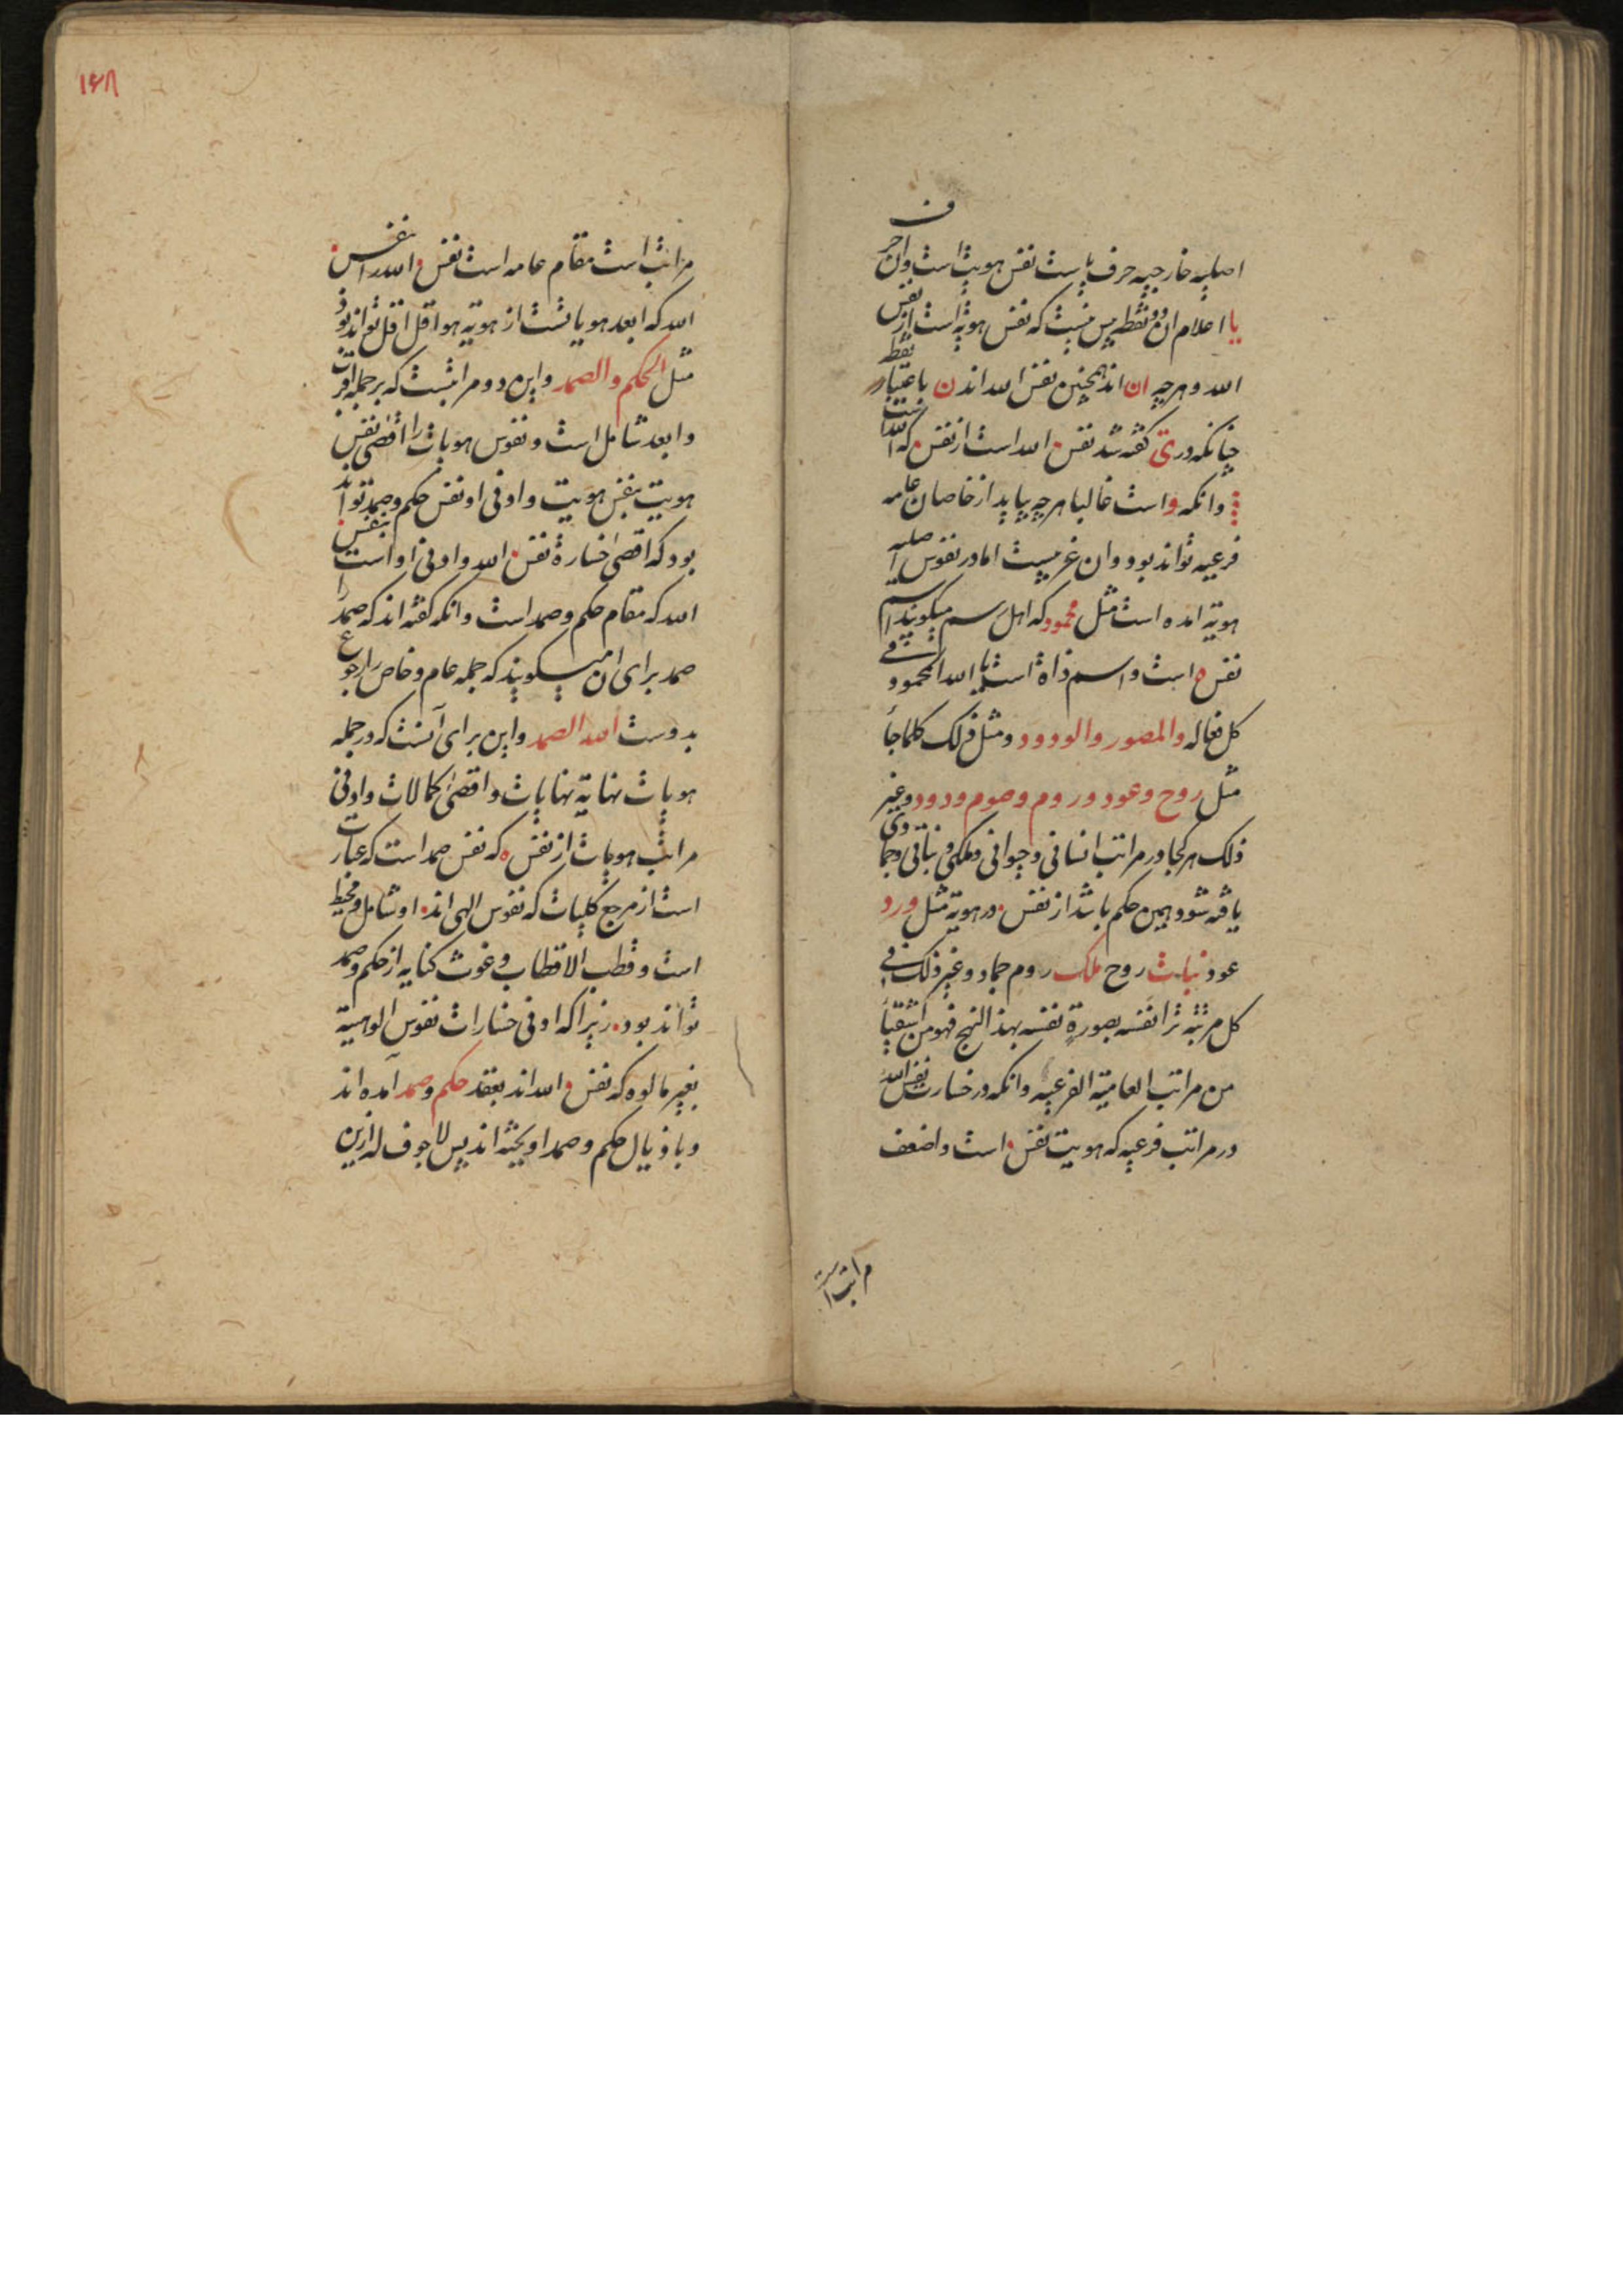 اصلیه خارجیه حرف یا ست نفس هویت است وان حرف
یا اعلام ان دو نقطه پس نیست که نفس هویة است از نفس
الله و هرچه ان اند همچنین نفس الله اند ن باعتبار نقطه
چنانکه در ی کفته شد نفس الله است از نفس که الله است
وانکه و است غالبا هرچه بیاید از خاصان عامه
فرعیه تواند بود وان غریبست اما در نفوس اصلیه
هویة امده است مثل محمود که اهل رسم میکویند اسم
نفس ه است و اسم ذاة است یا الله المحمود فی
کل فعاله والمصور والودود و مثل ذلک کلما جأ
مثل روح و عود و روم و صوم و دود و غیر
ذلک هرکجا در مراتب انسانی و حیوانی و ملکی و نباتی و جمادی
یافته شود همین حکم باشد از نفس در هویة مثل ورد
عود نبات روح ملک روم جماد و غیر ذلک فی
کل مرتبه ترا نفسه بصورة نفسه بهذا النهج فهو من
من مراتب العامیة الفرعیه وانکه در خسارت نفس الله
در مراتب فرعیه که هویت نفس است و اضعف
مراتب است
۱۶۸
مراتب است مقام عامه است نفس و الله را بنفس
الله که ابعد هویاتست از هویة هو اقل اقل تواند بود
مثل الحکم والصمد و این دو مراتبست که بر جمله اقرب
و ابعد شامل است و نفوس هویات را اقصی نفس
هویت بنفس هویت و اوفی او نفس حکم و صمد تواند
بود که اقصی خسارة نفس الله و اوفی او است بنفس
الله که مقام حکم و صمد است وانکه کفته اند که صمد را
صمد برای ان میکویند که جمله عام و خاص را رجوع
بدوست الله الصمد و این برای آنست که در جمله
هویات نهایة نهایات و اقصی کمالات و اوفی
مراتب هویات از نفس ه که نفس صمد است که عبارت
است از مرجع کلیات که نفوس الهی اند او شامل و محیط
است و قطب الاقطاب و غوث کنایه از حکم و صمد
تواند بود زیرا که اوفی خسارات نفوس الوهیة
بغیر مالوه که نفس و الله اند بعقد حکم و صمد آمده اند
و باذیال حکم و صمد اویخته اند پس لا جوف له ازین